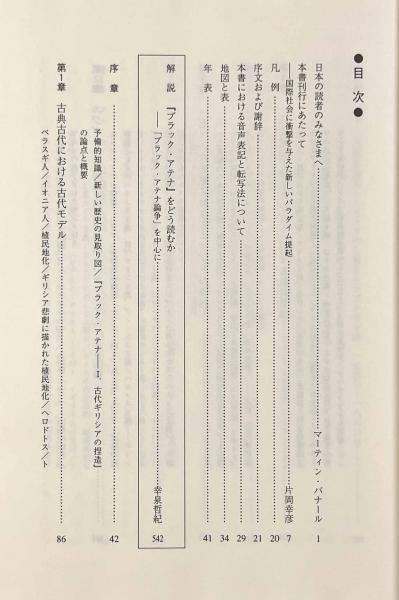 ●目 次●
日本の読者のみなさまへ……………マーティン・バナール 1
本書刊行にあたって
──国際社会に衝撃を与えた新しいパラダイム提起……………片岡幸彦 7
凡 例……………20
序文および謝辞……………21
本書における音声表記と転写法について……………29
地図と表……………34
年 表……………41
解 説 『ブラック・アテナ』をどう読むか
──「ブラック・アテナ論争」を中心に……………幸泉哲紀 542
序 章……………42
予備的知識/新しい歴史の見取り図/『ブラック・アテナ──Ⅰ.古代ギリシアの捏造』
の論点と概要
第1章 古典古代における古代モデル……………86
ペラスギ人/イオニア人/植民地化/ギリシア悲劇に描かれた植民地化/ヘロドトス/ト